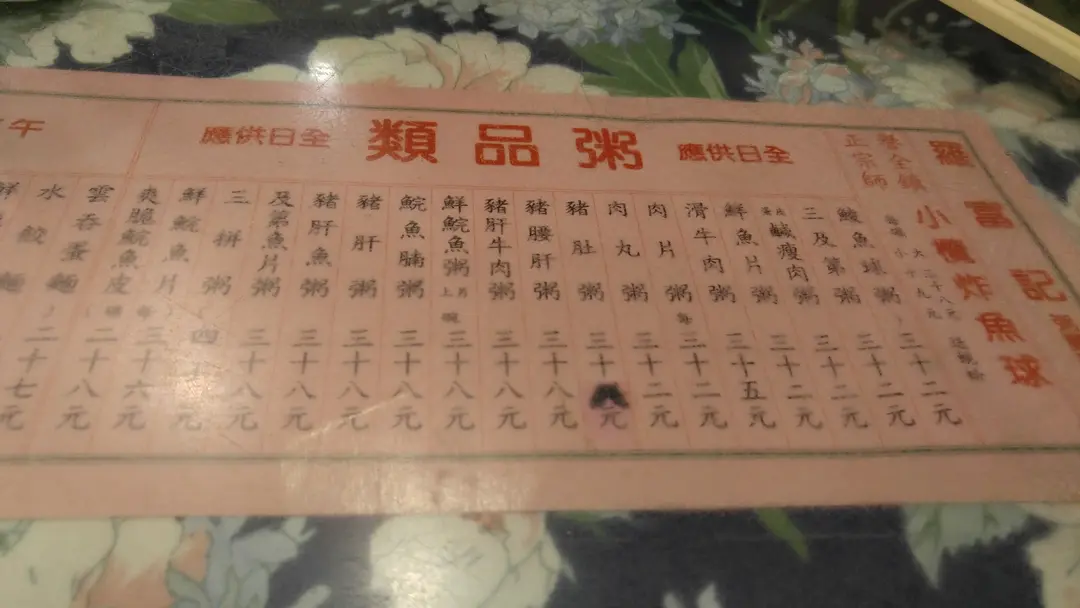 羅富記
小欖炸魚球
譽全鎮
正宗師
全日供應
粥品類
全日供應
鯪魚球粥 三十二元
三及第粥 三十二元
皮蛋鹹瘦肉粥 三十二元
鮮魚片粥 三十二元
滑牛肉粥 三十五元
肉片粥 三十二元
肉丸粥 三十二元
豬肚粥 三十八元
豬腰肝粥 三十八元
豬肝牛肉粥 三十八元
鮮鯇魚粥 三十八元
鯇魚腩粥 三十八元
豬肝粥 三十八元
豬肝魚粥 三十八元
及第魚片粥 三十八元
三拼粥 四十元
鮮鯇魚片 三十六元
爽脆鯇魚皮 二十八元
午
雲吞蛋麵 二十七元
水餃麵